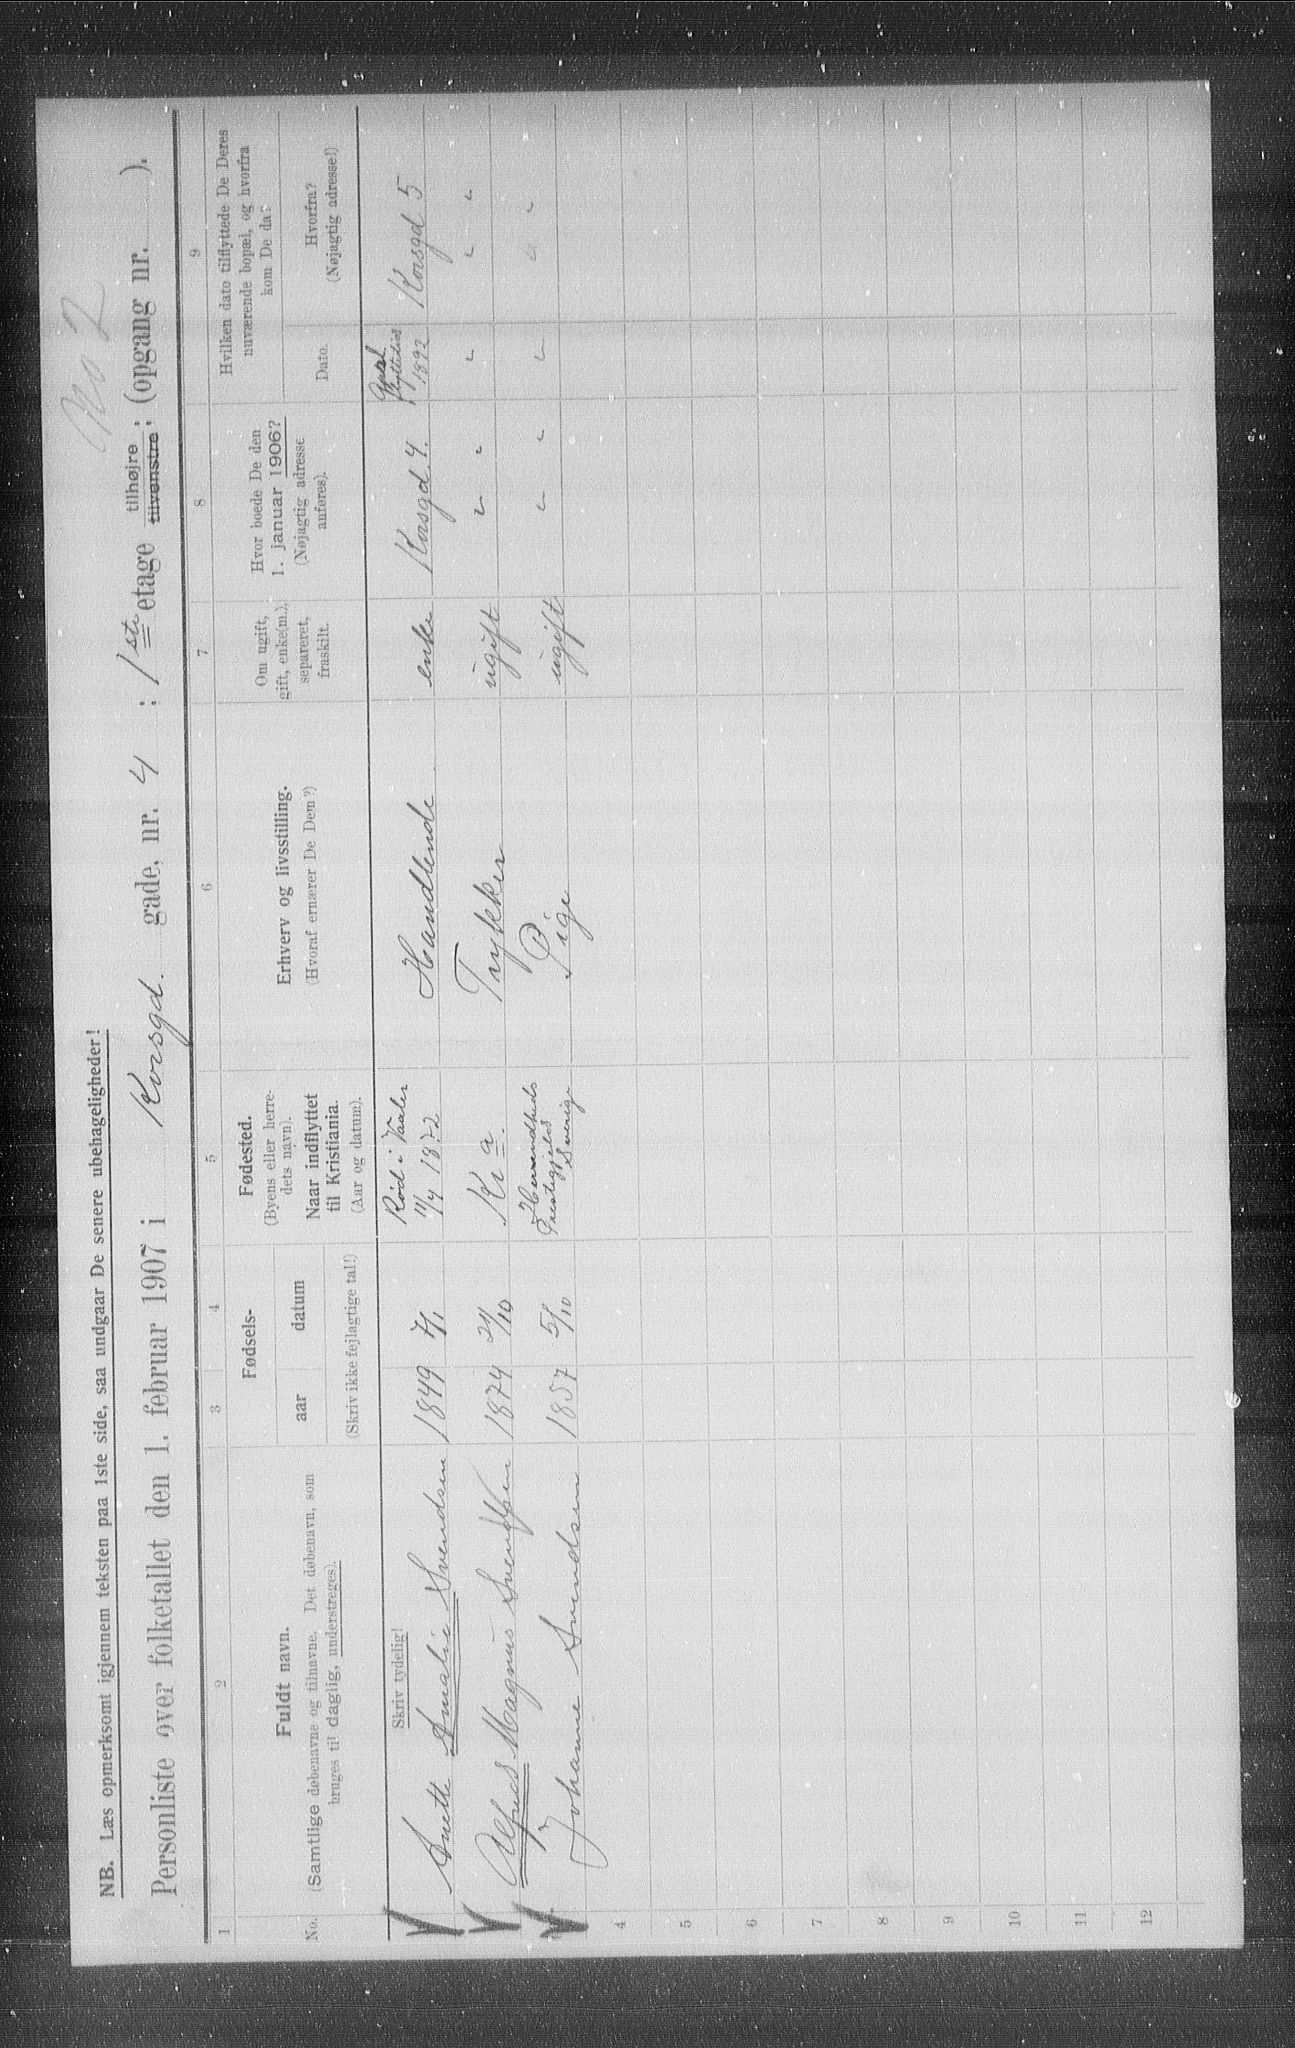 No 2
NB. Læs opmerksomt igjennem teksten paa 1ste side, saa undgaar De senere ubehageligheder!
Personliste over folketallet den 1. februar 1907 i Korsgd. gade, nr. 4 ; 1ste etage tilhøjre tilvenstre; (opgang nr. ).
1 2 3 4 5 6 7 8 9
No.
Fuldt navn.
(Samtlige døbenavne og tilnavne. Det døbenavn, som
bruges til daglig, understreges).
Fødsels-
aar datum
(Skriv ikke fejlagtige tal!)
Fødested.
(Byens eller herre-
dets navn).
Naar indflyttet
til Kristiania.
(Aar og datum).
Erhverv og livsstilling.
(Hvoraf ernærer De Dem?)
Om ugift,
gift, enke(m.),
separeret,
fraskilt.
Hvor boede De den
1. januar 1906?
(Nøjagtig adresse
anføres).
Hvilken dato tilflyttede De Deres
nuværende bopæl, og hvorfra
kom De da?
Dato.
Hvorfra?
(Nøjagtig adresse!)
Skriv tydelig!
Anette Amalie Svendsen 1849 7/1 Rød i Vaaler 11/4 1872 Handlende enke Korsgd. 4. April flyttetid 1892 Korsgd 5
Alfred Magnus Svendsen 1874 24/10 Kr a. Trykker ugift " " " " "
Johanne Svendsen 1857 5/10 Prestegjeld Sverige Pige ugift " " " " "
4
5
6
7
8
9
10
11
12